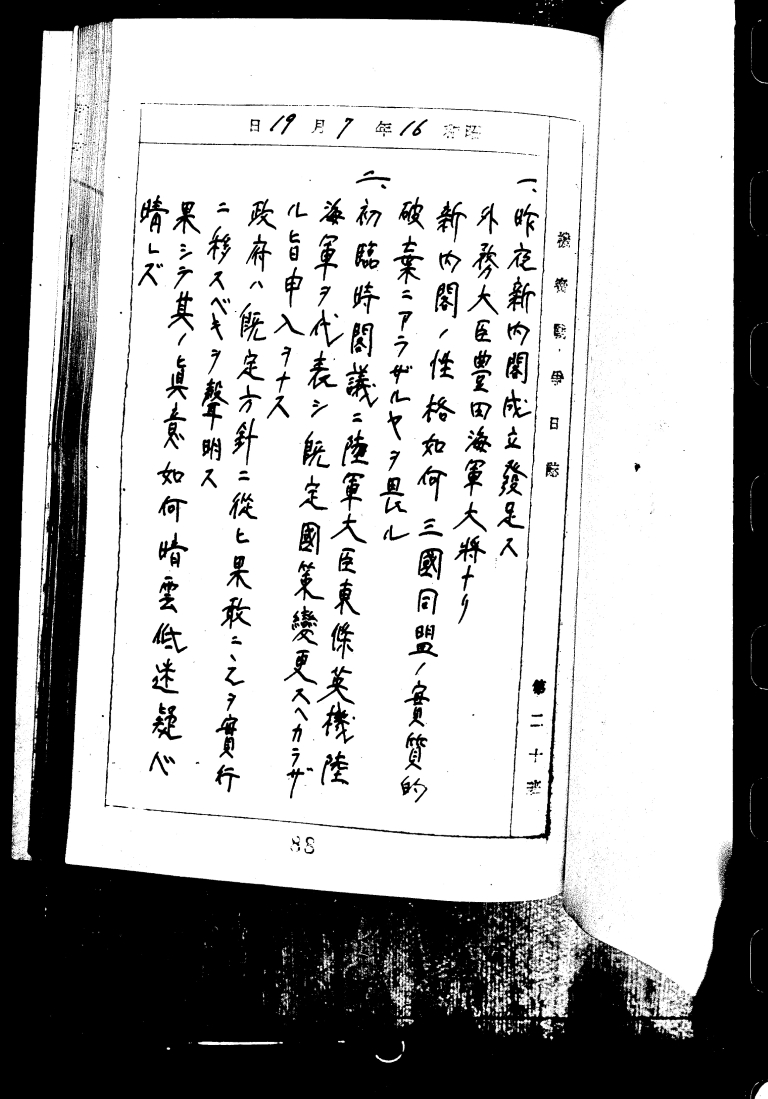 昭和16年7月19日
機密戰爭日誌
第二十班
一、昨夜新内閣成立發足ス
外務大臣豊田海軍大將ナリ
新内閣ノ性格如何三國同盟ノ實質的
破棄ニアラザルヤヲ畏ル
二、初臨時閣議ニ陸軍大臣東條英機陸
海軍ヲ代表シ既定國策變更スヘカラザ
ル旨申入ヲナス
政府ハ既定方針ニ從ヒ果敢ニ之ヲ實行
ニ移スベキヲ聲明ス
果シテ其ノ眞意如何暗雲低迷疑ベ
晴レズ
88